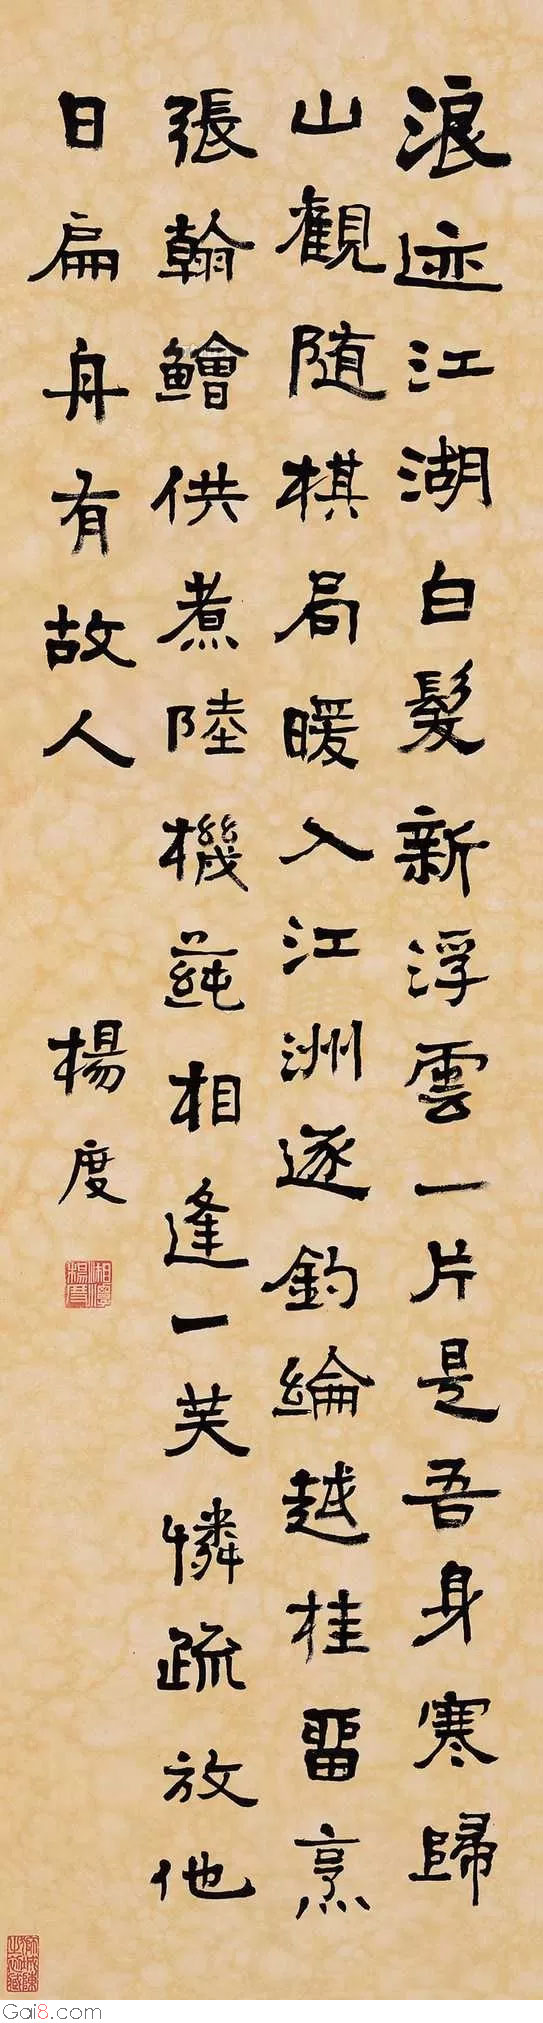 浪迹江湖白髮新浮雲一片是吾身寒歸
山觀随棋局暖入江洲逐釣綸越桂留烹
張翰鱠供煮陸機蒓相逢一芙憐疏放他
日扁舟有故人
楊度
湘潭楊度
Gai8.com